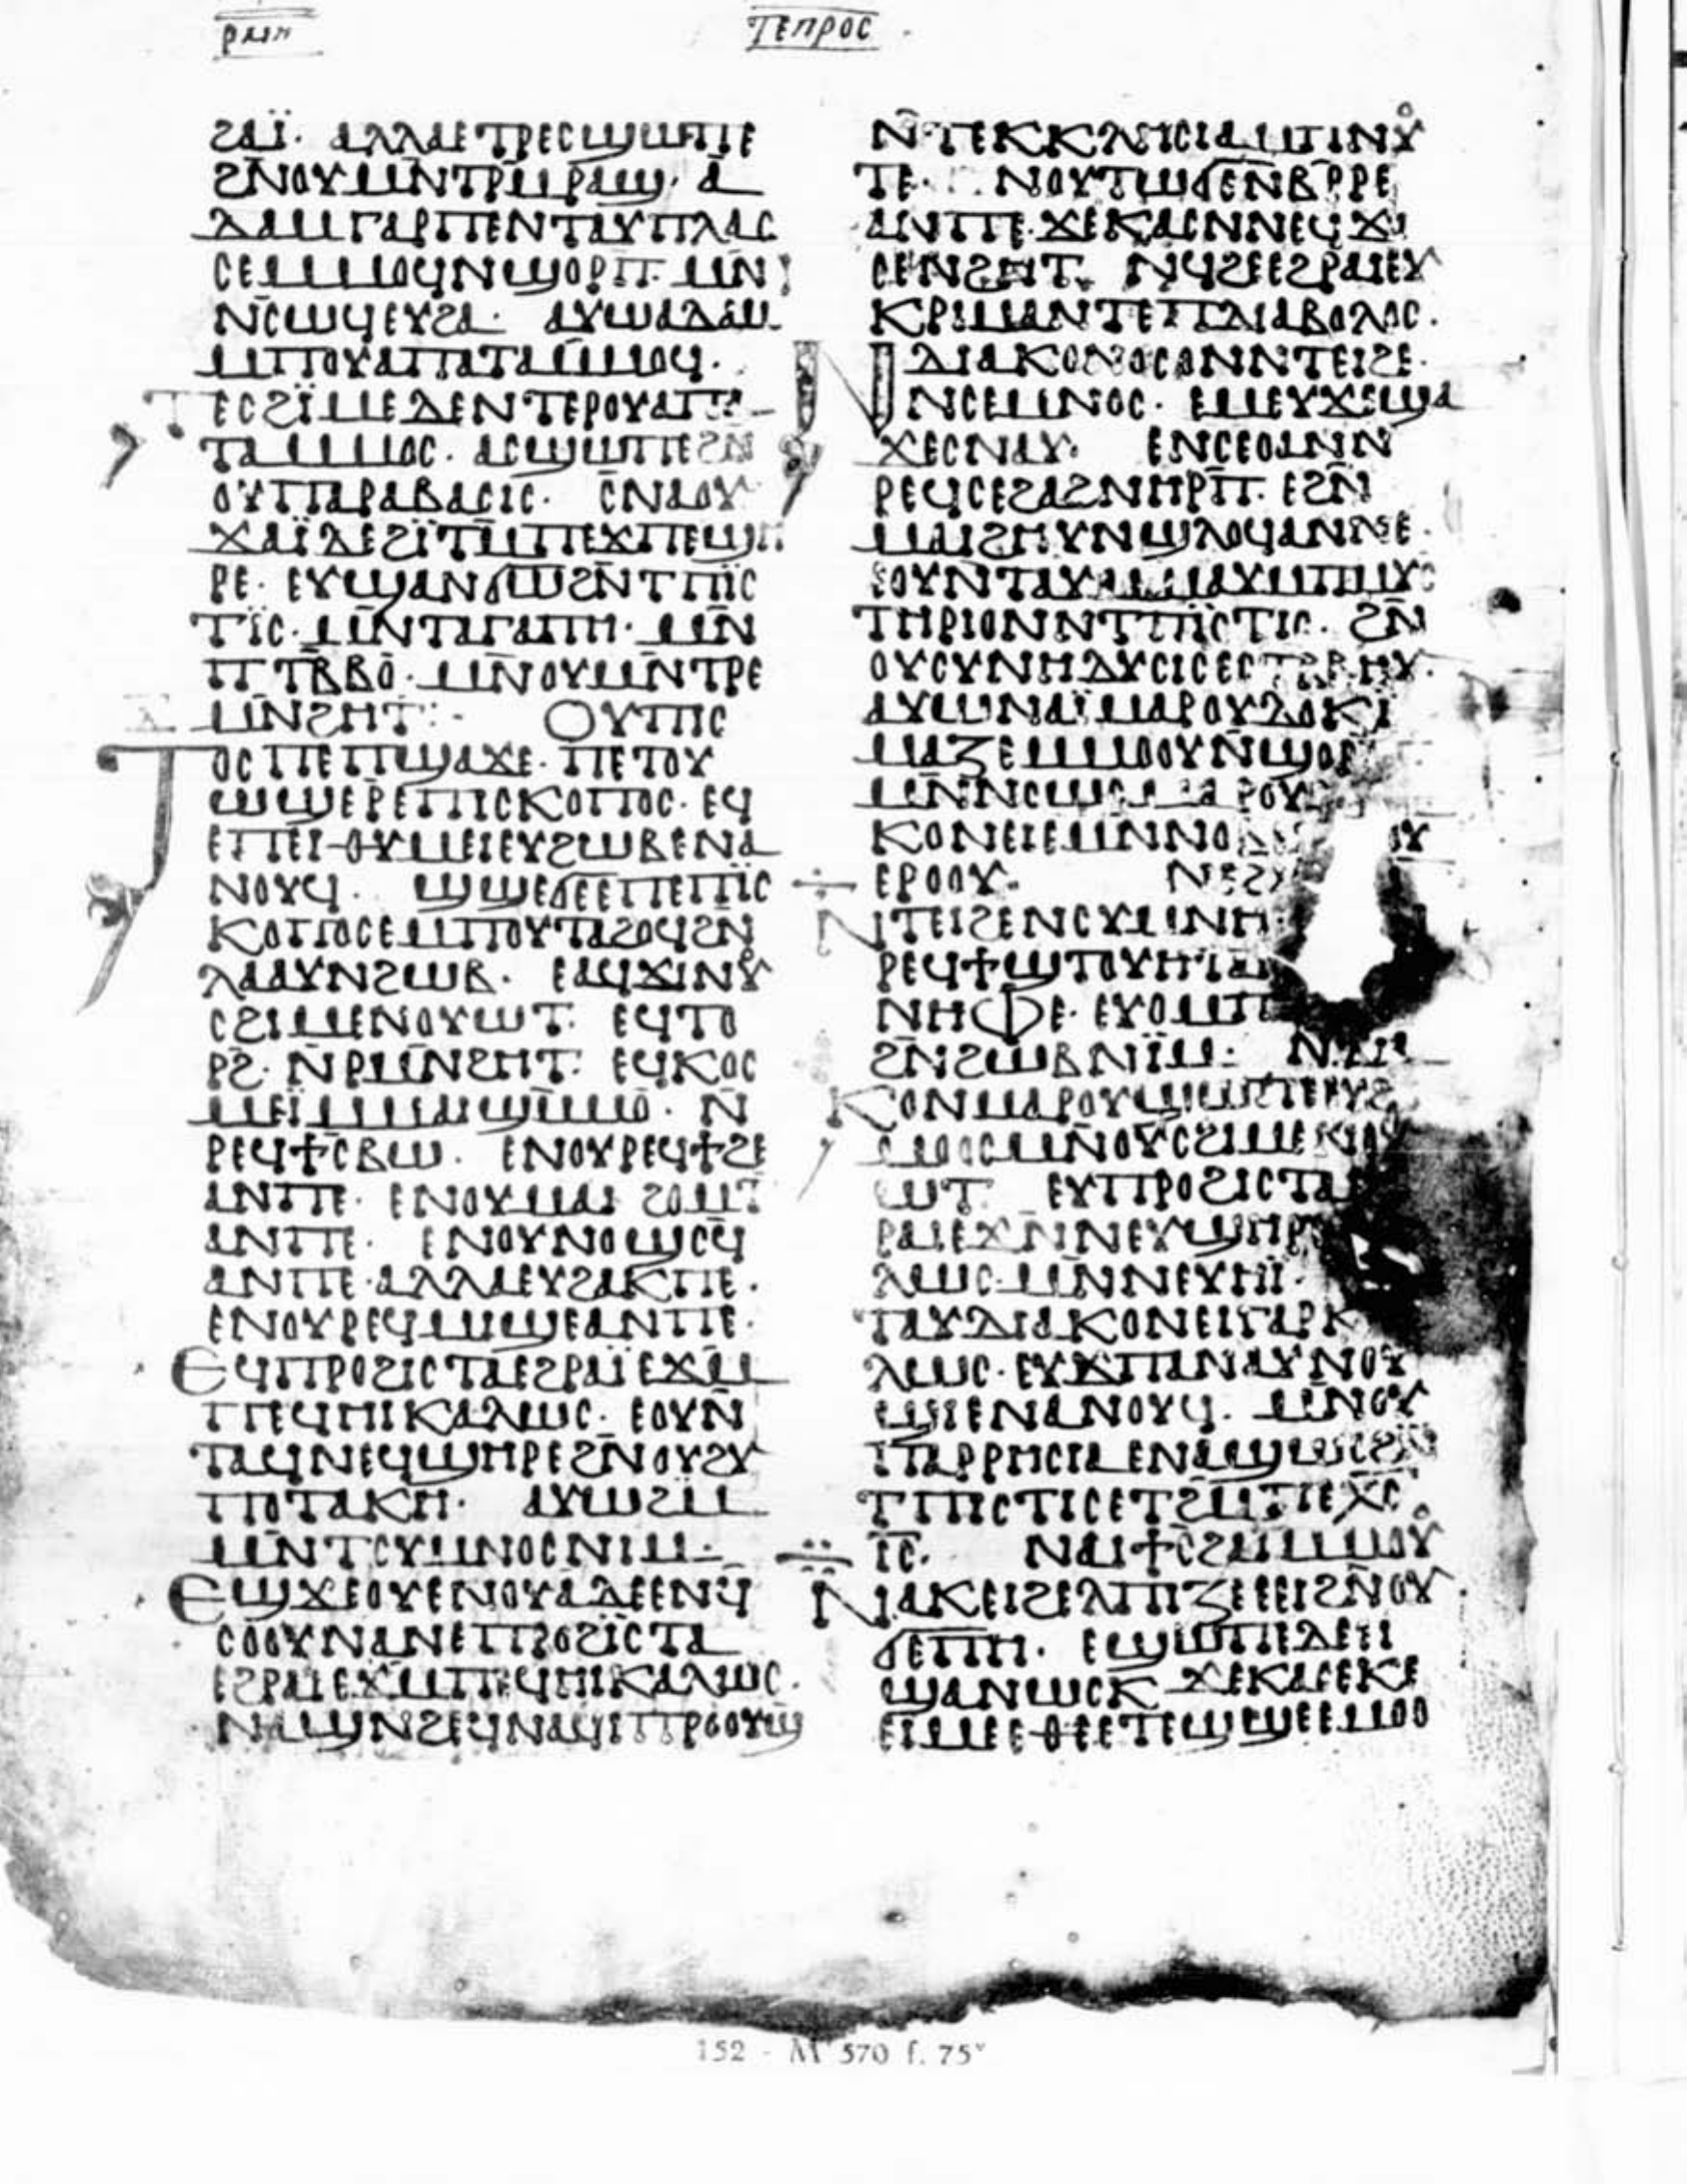 ⲣⲙⲏ
ⲧⲉⲡⲣⲟⲥ
ϩⲁⲓ̈· ⲁⲗⲗⲁ ⲉⲧⲣⲉⲥϣⲱⲡⲉ
ϩⲛⲟⲩⲙⲛ̄ⲧⲣⲙ̄ⲣⲁϣ· ⲁ̄
ⲇⲁⲙ ⲅⲁⲣ ⲡⲉⲛⲧⲁⲩⲡⲗⲁⲥ
ⲥⲉ ⲙ̄ⲙⲟϥ ⲛ̄ϣⲟⲣⲡ̄· ⲙⲛ̄
ⲛ̄ⲥⲱϥ ⲉⲩϩⲁ· ⲁⲩⲱ ⲁⲇⲁⲙ
ⲙ̄ⲡⲟⲩⲁⲡⲁⲧⲁ ⲙ̄ⲙⲟϥ·
ⲧⲉⲥϩⲓ̈ⲙⲉ ⲇⲉ ⲛⲧⲉⲣⲟⲩⲁⲡⲁ
ⲧⲁ ⲙ̄ⲙⲟⲥ· ⲁⲥϣⲱⲡⲉ ϩⲛ̄
ⲟⲩⲡⲁⲣⲁⲃⲁⲥⲓⲥ· ⲥ̄ⲛⲁⲟⲩ
ϫⲁⲓ̈ ⲇⲉ ϩⲓ̈ⲧⲙ̄ ⲡⲉϫⲡⲉϣⲏ
ⲣⲉ· ⲉⲩϣⲁⲛϭⲱ ϩⲛ̄ ⲧⲡⲓ̈ⲥ
ⲧⲓ̈ⲥ· ⲙⲛ̄ ⲧⲁⲅⲁⲡⲏ· ⲙⲛ̄
ⲡⲧⲃ̄ⲃⲟ̄· ⲙⲛ̄ ⲟⲩⲙⲛ̄ⲧⲣⲉ
ⲙⲛ̄ϩⲏⲧ:- ⲟⲩⲡⲓⲥ
ⲧⲟⲥ ⲡⲉ ⲡϣⲁϫⲉ· ⲡⲉⲧⲟⲩ
ⲱϣ ⲉⲣⲉⲡⲓⲥⲕⲟⲡⲟⲥ· ⲉϥ
ⲉⲡⲉⲓⲑⲩⲙⲉⲓ ⲉⲩϩⲱⲃ ⲉⲛⲁ
ⲛⲟⲩϥ· ϣϣⲉ ϭⲉ ⲉⲡⲉⲡⲓ̈ⲥ
ⲕⲟⲡⲟⲥ ⲉⲙⲡⲟⲩⲧⲁϩⲟϥ ϩⲛ̄
ⲗⲁⲁⲩ ⲛϩⲱⲃ· ⲉⲁϥϫⲓ ⲛⲟⲩ
ⲥϩⲓⲙⲉ ⲛⲟⲩⲱⲧ· ⲉϥⲧⲟ
ⲣϩ̄· ⲛ̄ⲣⲙ̄ⲛϩⲏⲧ· ⲉϥⲕⲟⲥ
ⲙⲉⲓ̈ ⲙ̄ⲙⲁⲓϣⲙ̄ⲙⲟ̄· ⲛ̄
ⲣⲉϥϯⲥⲃⲱ· ⲉⲛⲟⲩⲣⲉϥϯϩⲉ
ⲁⲛ ⲡⲉ· ⲉⲛⲟⲩⲙⲁⲓ ϩⲟⲙⲧ
ⲁⲛ ⲡⲉ· ⲉⲛⲟⲩⲛⲟϣⲥϥ̄
ⲁⲛ ⲡⲉ· ⲁⲗⲗⲁ ⲉⲩϩⲁⲕ ⲡⲉ·
ⲉⲛⲟⲩⲣⲉϥⲙⲓϣⲉ ⲁⲛ ⲡⲉ·
ⲉϥⲡⲣⲟϩⲓⲥⲧⲁ ⲉϩⲣⲁⲓ̈ ⲉϫⲙ̄
ⲡⲉϥⲏⲓ ⲕⲁⲗⲱⲥ· ⲉⲟⲩⲛ̄
ⲧⲁϥ ⲛⲉϥϣⲏⲣⲉ ϩⲛⲟⲩϩⲩ
ⲡⲟⲧⲁⲕⲏ· ⲁⲩⲱ ϩⲙ̄
ⲙⲛ̄ⲧⲥⲩⲙⲛⲟⲥ ⲛⲓⲙ·
ⲉϣϫⲉ ⲟⲩⲉⲛⲟⲩⲁ ⲇⲉ ⲉⲛϥ̄
ⲥⲟⲟⲩⲛ ⲁⲛ ⲉⲡⲣⲟϩⲓ̈ⲥⲧⲁ
ⲉϩⲣⲁⲓ ⲉϫⲙ̄ ⲡⲉϥⲏⲓ ⲕⲁⲗⲱⲥ·
ⲛⲁϣ ⲛϩⲉ ϥⲛⲁϥⲓ ⲡⲣⲟⲟⲩϣ
ⲛ̄ⲧⲉⲕⲕⲗⲏⲥⲓⲁ ⲙⲡⲛⲟⲩ
ⲧⲉ· ⲛⲟⲩⲧⲱϭⲉ ⲛⲃⲣ̄ⲣⲉ
ⲁⲛ ⲡⲉ· ϫⲉⲕⲁⲥ ⲛⲛⲉϥϫⲓ
ⲥⲉ ⲛϩⲏⲧ· ⲛϥϩⲉ ⲉϩⲣⲁⲓ ⲉⲩ
ⲕⲣⲓⲙⲁ ⲛⲧⲉ ⲡⲇⲓⲁⲃⲟⲗⲟⲥ·
ⲛⲇⲓⲁⲕⲟⲛⲟⲥ ⲟⲛ ⲛⲧⲉⲓϩⲉ·
ⲛⲥⲉⲙⲛⲟⲥ· ⲉⲙⲉⲩϫⲉ ϣⲁ
ϫⲉ ⲥⲛⲁⲩ· ⲉⲛⲥⲉⲟ ⲁⲛ ⲛ
ⲣⲉϥⲥⲉϩⲁϩ ⲛⲏⲣⲡ̄· ⲉϩⲛ̄
ⲙⲁⲓϩⲏⲩ ⲛϣⲗⲟϥ ⲁⲛ ⲛⲉ·
ⲉⲟⲩⲛⲧⲁⲩ ⲙⲙⲁⲩ ⲙⲡⲙⲩⲥ
ⲧⲏⲣⲓⲟⲛ ⲛⲧⲡⲓ̈ⲥⲧⲓⲥ· ϩⲛ̄
ⲟⲩⲥⲩⲛⲏⲇⲩⲥⲓⲥ ⲉⲥⲧⲃⲃⲏⲩ·
ⲁⲩⲱ ⲛⲁⲓ̈ ⲙⲁⲣⲟⲩⲇⲟⲕⲓ
ⲙⲁⲍⲉ ⲙⲙⲟⲟⲩ ⲛ̄ϣⲟⲣ
ⲙⲛ̄ⲛⲥⲱⲥ ⲙⲁⲣⲟⲩ
ⲕⲟⲛⲉⲓ ⲉⲙⲛ̄ⲛⲟ ⲟⲩ
ⲉⲣⲟⲟⲩ· ⲛⲉϩ
ⲛⲧⲉⲓϩⲉ ⲛⲥⲩⲙⲛⲏ
ⲣⲉϥϯϣⲧⲟⲩⲏⲧ ⲁⲛ
ⲛⲏⲫⲉ· ⲉⲩⲟ ⲙⲡ
ϩⲛ̄ϩⲱⲃ ⲛⲓ̈ⲙ: ⲛⲇⲓ
ⲕⲟⲛ ⲙⲁⲣⲟⲩϣⲱⲡⲉ ⲉⲩϩ
ⲙⲟⲟⲥ ⲙⲛ̄ⲟⲩⲥϩⲓⲙⲉ ⲛⲟⲩ
ⲱⲧ· ⲉⲩⲡⲣⲟϩⲓⲥⲧⲁ
ⲣⲁⲓ ⲉϫⲛ̄ ⲛⲉⲩϣⲏⲣ
ⲗⲱⲥ· ⲙⲛ̄ ⲛⲉⲩⲏⲓ̈·
ⲧⲁⲩⲇⲓⲁⲕⲟⲛⲉⲓ ⲅⲁⲣ ⲕ
ⲗⲱⲥ· ⲉⲩϫⲡⲓ ⲛⲁⲩ ⲛⲟⲩ
ⲙⲉ ⲉⲛⲁⲛⲟⲩϥ· ⲙⲛ̄ⲟⲩ
ⲡⲁⲣⲣⲏⲥⲓⲁ ⲉⲛⲁϣⲱⲥ ϩⲛ̄
ⲧⲡⲓⲥⲧⲓⲥ ⲉⲧϩⲙ̄ ⲡⲉⲭ̄ⲥ̄
ⲓ̄ⲥ̄· ⲛⲁⲓ ϯⲥϩⲁⲓ ⲙⲙⲟⲟⲩ
ⲛⲁⲕ ⲉⲓϩⲉⲗⲡⲓⲍⲉ ⲉⲉⲓ ϩⲛ̄ⲟⲩ
ϭⲉⲡⲏ· ⲉϣⲱⲡⲉ ⲇⲉ ⲉⲓ
ϣⲁⲛⲱⲥⲕ ϫⲉⲕⲁⲥ ⲉⲕⲉ
ⲉⲓⲙⲉ ⲉⲑⲉ ⲉⲧⲉϣϣⲉ ⲉⲙⲟⲟ
152 - M 570 f. 75ᵛ